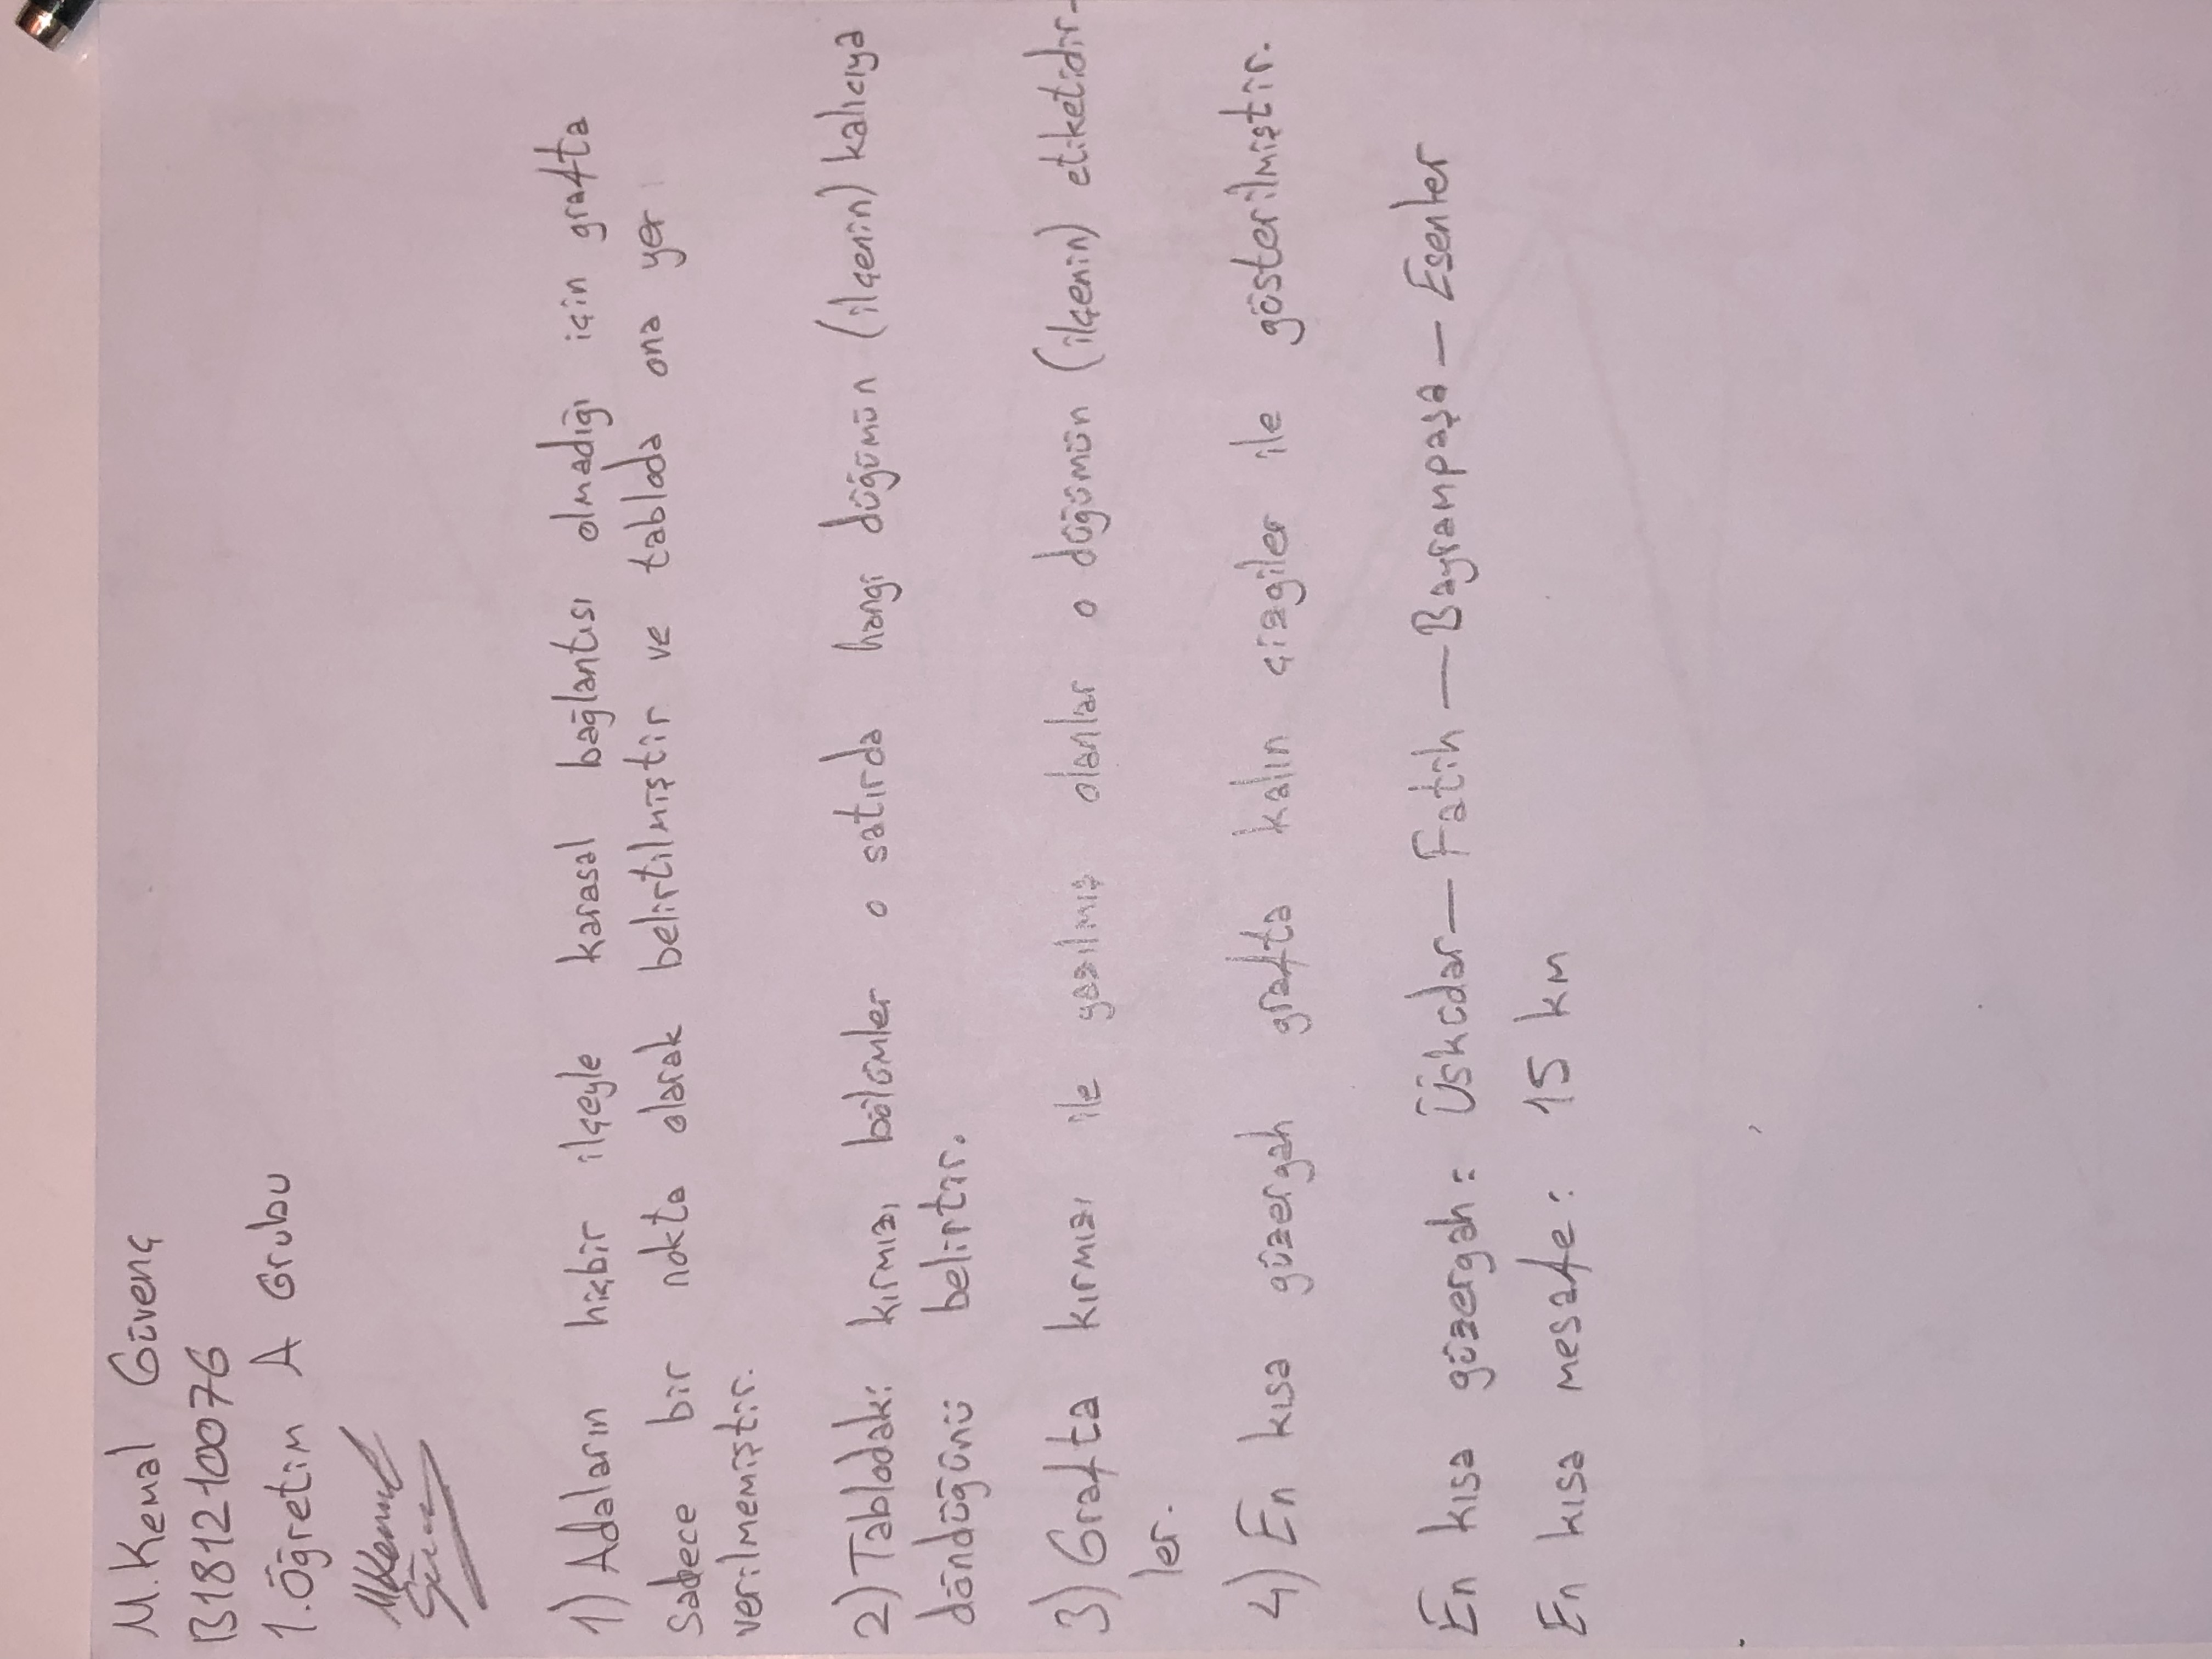 M. Kemal Güvenç
B181210076
1. Öğretim A Grubu
MKemal
1) Adaların hiçbir ilçeyle karasal bağlantısı olmadığı için grafta
sadece bir nokta olarak belirtilmiştir ve tabloda ona yer
verilmemiştir.
2) Tablodaki kırmızı bölümler o satırda hangi düğümün (ilçenin) kalıcıya
döndüğünü belirtir.
3) Grafta kırmızı ile yazılmış olanlar o düğümün (ilçenin) etiketidir-
ler.
4) En kısa güzergah grafta kalın çizgiler ile gösterilmiştir.
En kısa güzergah: Üsküdar — Fatih — Bayrampaşa — Esenler
En kısa mesafe: 15 km